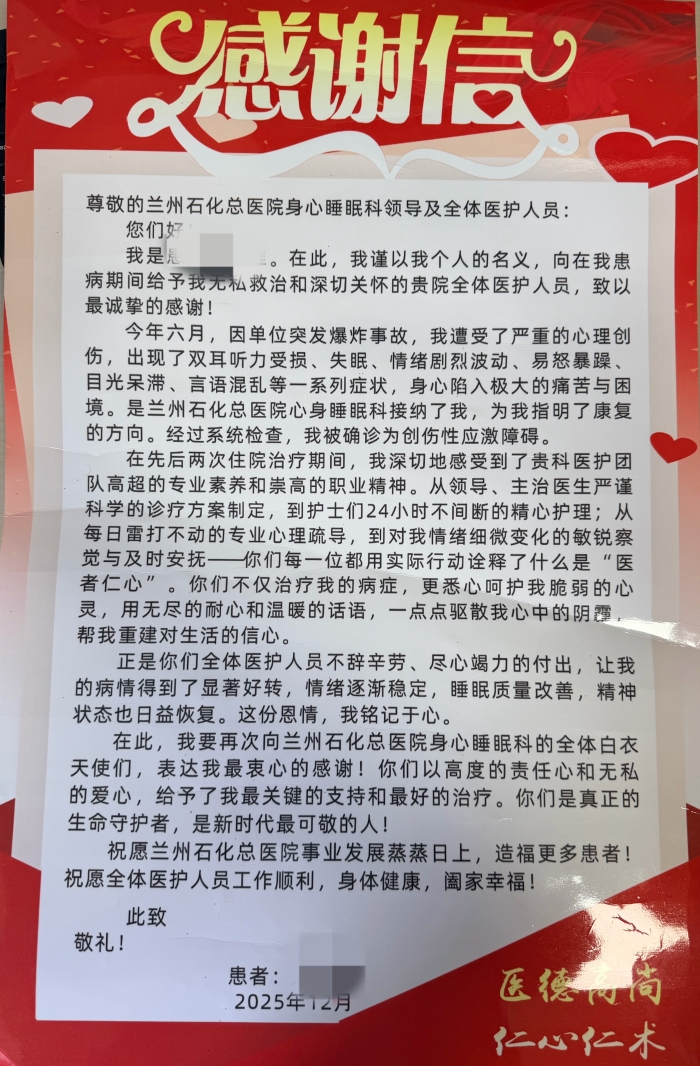 感谢信
尊敬的兰州石化总医院身心睡眠科领导及全体医护人员：
您们好
我是患。在此，我谨以我个人的名义，向在我患
病期间给予我无私救治和深切关怀的贵院全体医护人员，致以
最诚挚的感谢！
今年六月，因单位突发爆炸事故，我遭受了严重的心理创
伤，出现了双耳听力受损、失眠、情绪剧烈波动、易怒暴躁、
目光呆滞、言语混乱等一系列症状，身心陷入极大的痛苦与困
境。是兰州石化总医院心身睡眠科接纳了我，为我指明了康复
的方向。经过系统检查，我被确诊为创伤性应激障碍。
在先后两次住院治疗期间，我深切地感受到了贵科医护团
队高超的专业素养和崇高的职业精神。从领导、主治医生严谨
科学的诊疗方案制定，到护士们24小时不间断的精心护理；从
每日雷打不动的专业心理疏导，到对我情绪细微变化的敏锐察
觉与及时安抚——你们每一位都用实际行动诠释了什么是“医
者仁心”。你们不仅治疗我的病症，更悉心呵护我脆弱的心
灵，用无尽的耐心和温暖的话语，一点点驱散我心中的阴霾，
帮我重建对生活的信心。
正是你们全体医护人员不辞辛劳、尽心竭力的付出，让我
的病情得到了显著好转，情绪逐渐稳定，睡眠质量改善，精神
状态也日益恢复。这份恩情，我铭记于心。
在此，我要再次向兰州石化总医院身心睡眠科的全体白衣
天使们，表达我最衷心的感谢！你们以高度的责任心和无私
的爱心，给予了我最关键的支持和最好的治疗。你们是真正的
生命守护者，是新时代最可敬的人！
祝愿兰州石化总医院事业发展蒸蒸日上，造福更多患者！
祝愿全体医护人员工作顺利，身体健康，阖家幸福！
此致
敬礼！
患者：
2025年12月
医德高尚
仁心仁术